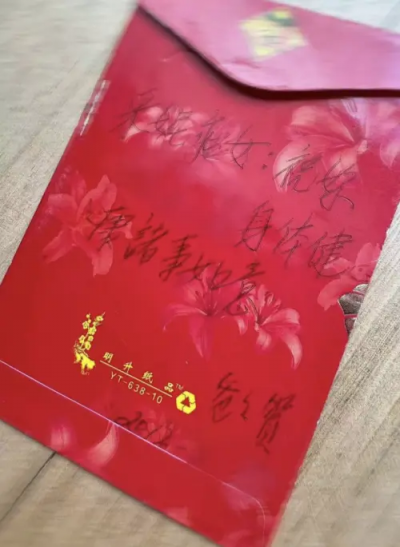 爱女:祝你
身体健
康諸事如意
明升纸品™
YT-638-10
爸々贺